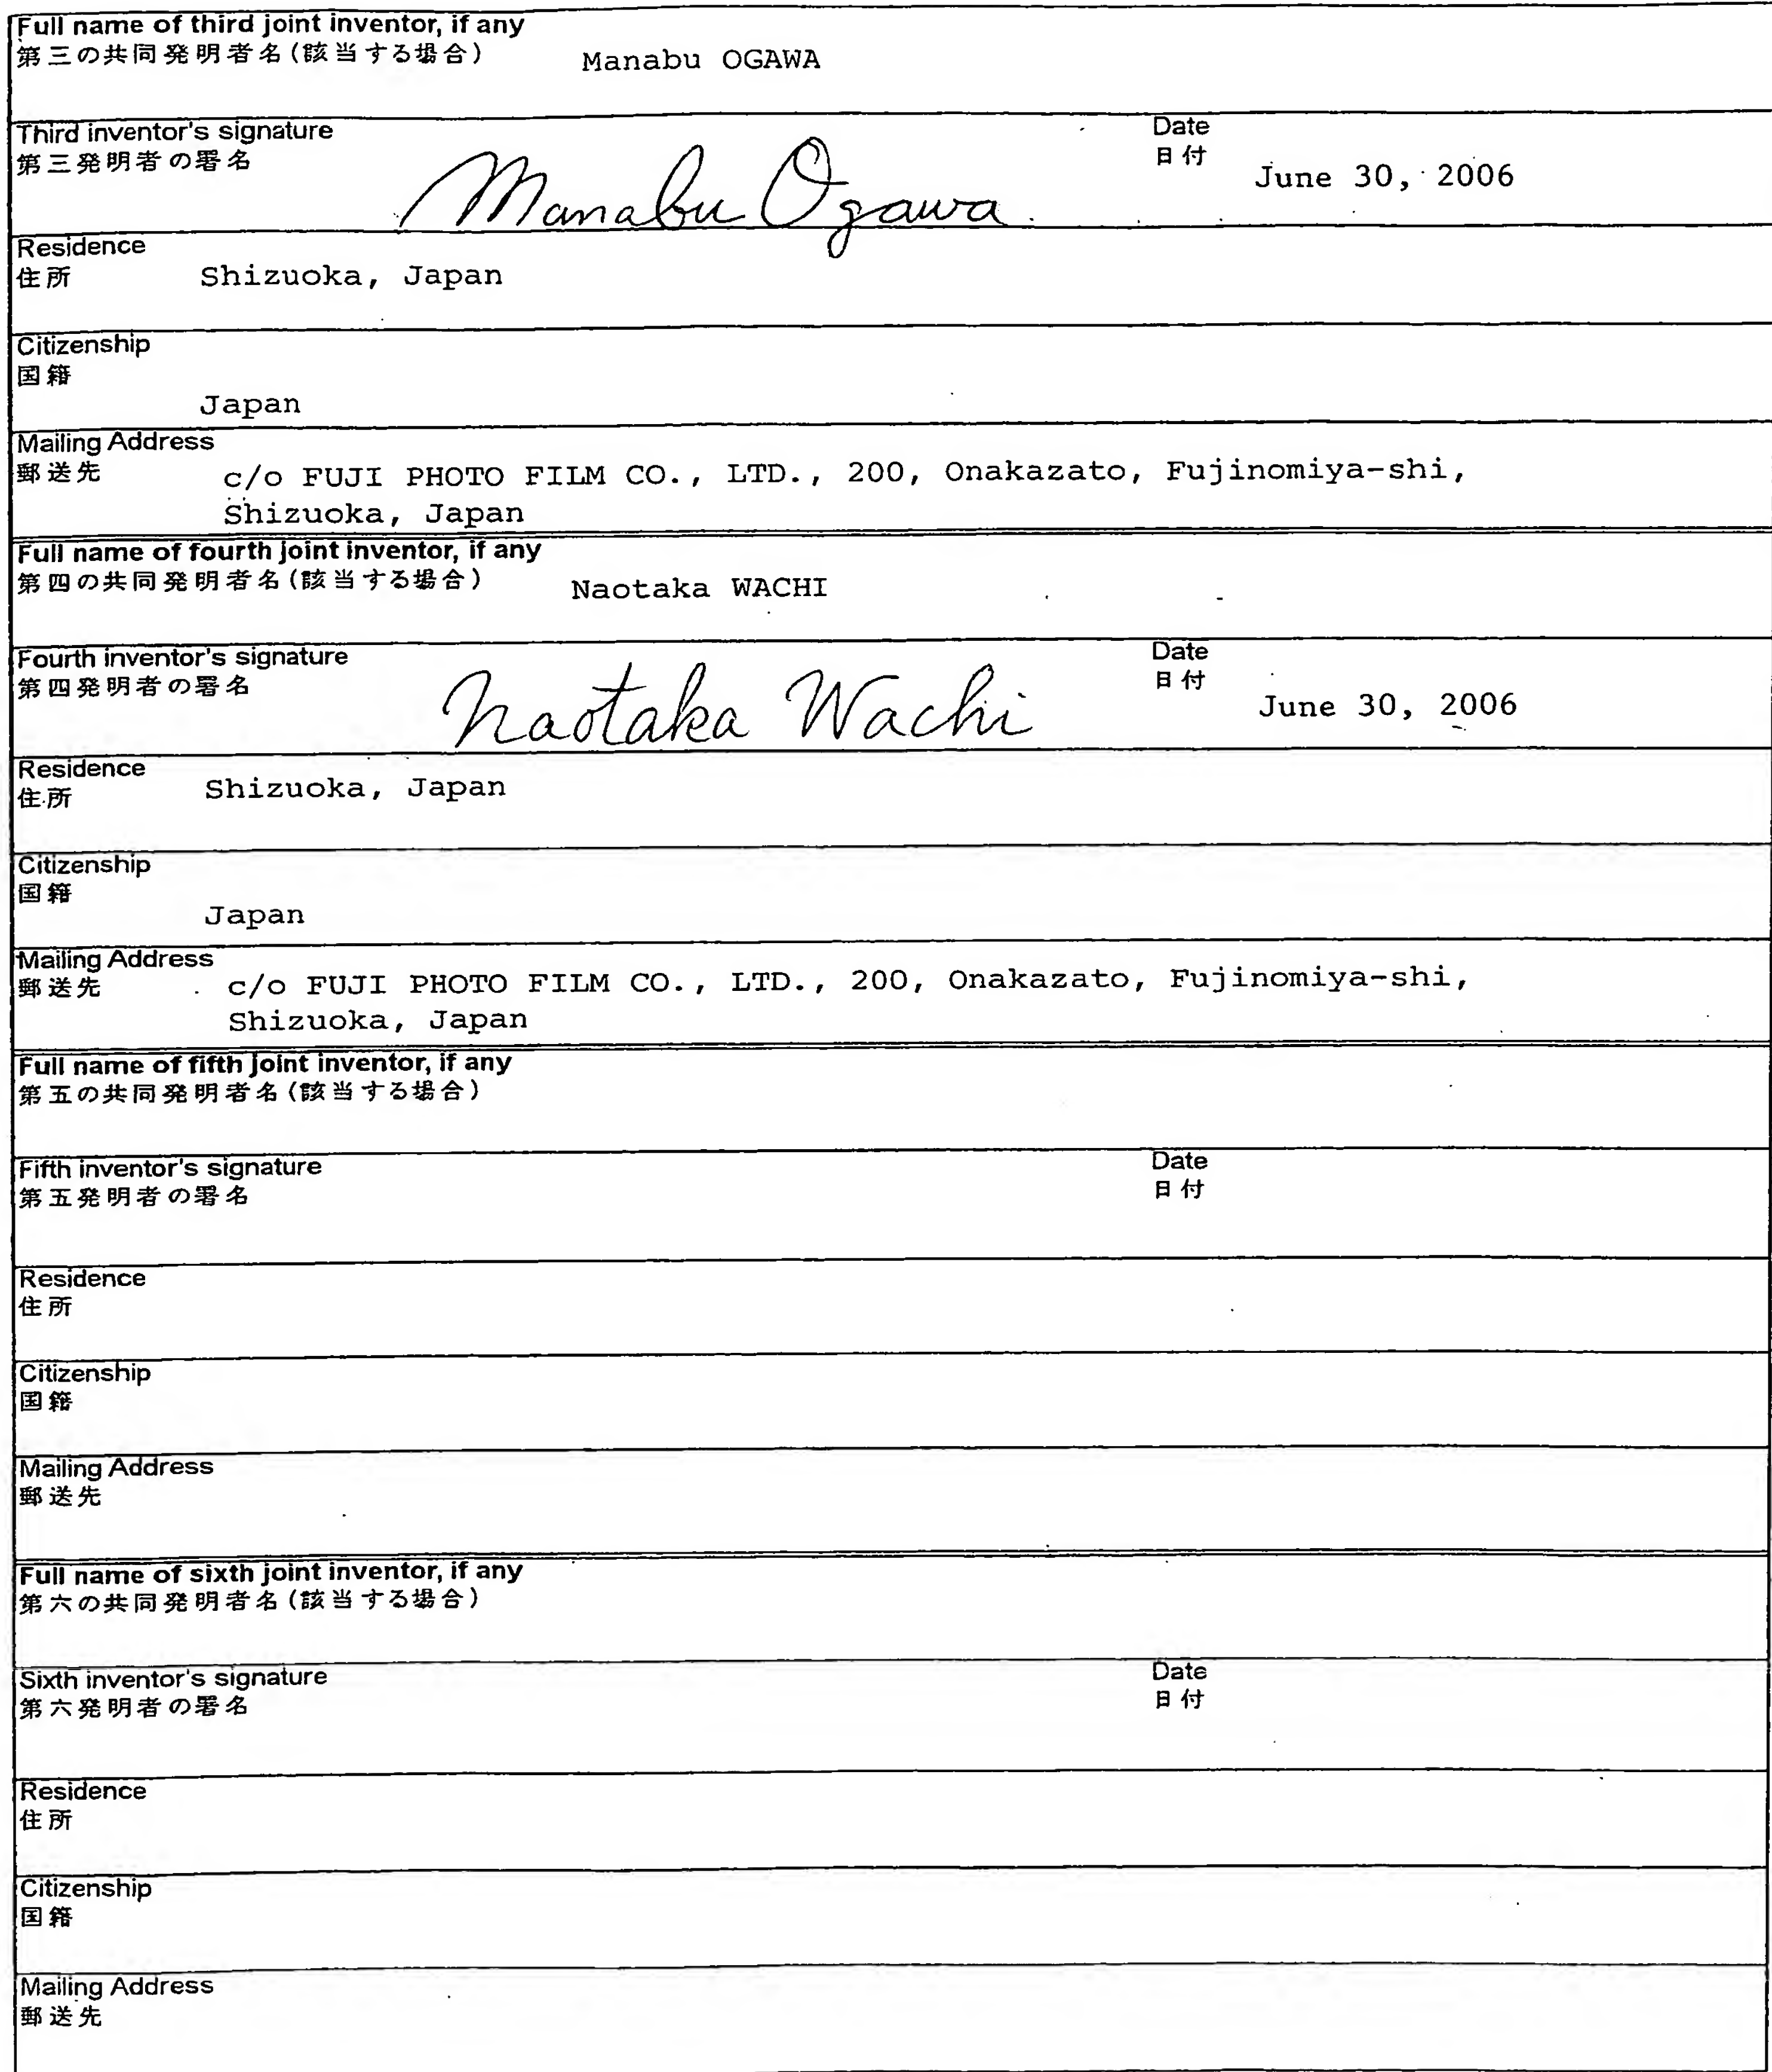 Full name of third joint inventor, if any
第三の共同発明者名(該当する場合) Manabu OGAWA
Third inventor's signature Date
第三発明者の署名 Manabu Ogawa 日付 June 30, 2006
Residence
住所 Shizuoka, Japan
Citizenship
国籍
Japan
Mailing Address
郵送先 c/o FUJI PHOTO FILM CO., LTD., 200, Onakazato, Fujinomiya-shi,
Shizuoka, Japan
Full name of fourth joint inventor, if any
第四の共同発明者名(該当する場合) Naotaka WACHI
Fourth inventor's signature Date
第四発明者の署名 Naotaka Wachi 日付 June 30, 2006
Residence
住所 Shizuoka, Japan
Citizenship
国籍
Japan
Mailing Address
郵送先 c/o FUJI PHOTO FILM CO., LTD., 200, Onakazato, Fujinomiya-shi,
Shizuoka, Japan
Full name of fifth joint inventor, if any
第五の共同発明者名(該当する場合)
Fifth inventor's signature Date
第五発明者の署名 日付
Residence
住所
Citizenship
国籍
Mailing Address
郵送先
Full name of sixth joint inventor, if any
第六の共同発明者名(該当する場合)
Sixth inventor's signature Date
第六発明者の署名 日付
Residence
住所
Citizenship
国籍
Mailing Address
郵送先